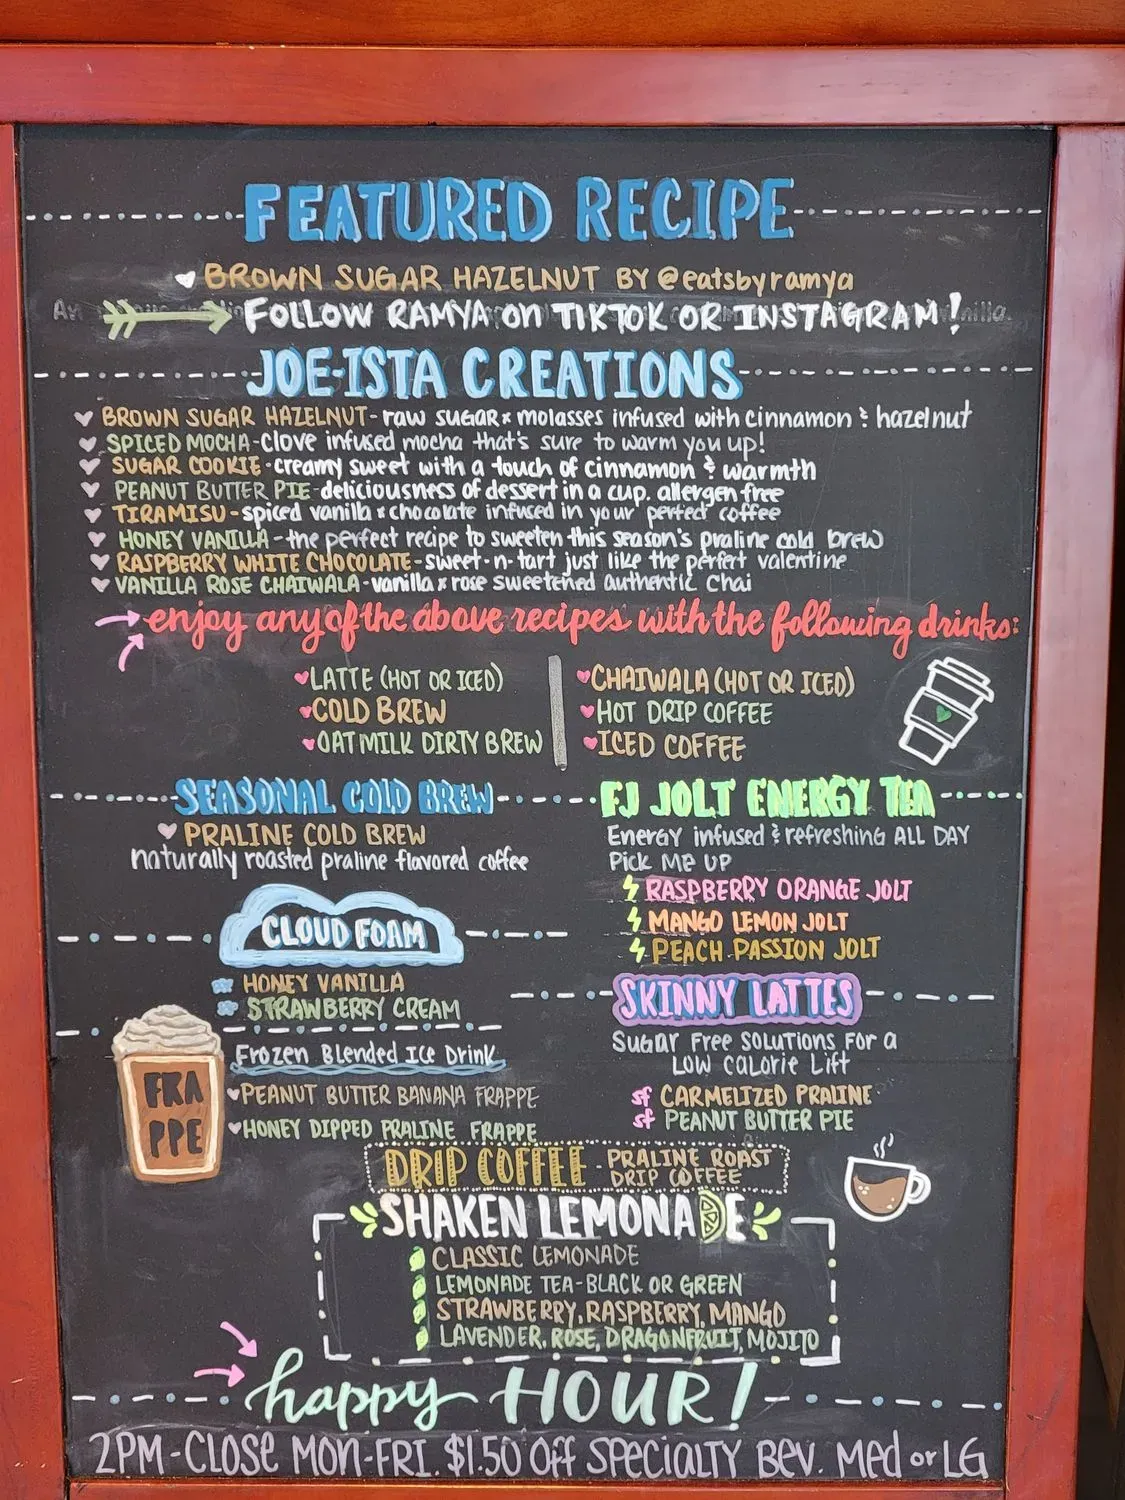 FEATURED RECIPE
BROWN SUGAR HAZELNUT BY @eatsbyramya
FOLLOW RAMYA on TIKTOK OR INSTAGRAM!
JOE-ISTA CREATIONS
BROWN SUGAR HAZELNUT - raw sugar x molasses infused with cinnamon & hazelnut
SPICED MOCHA - clove infused mocha that's sure to warm you up!
SUGAR COOKIE - creamy sweet with a touch of cinnamon & warmth
PEANUT BUTTER PIE - deliciousness of dessert in a cup. allergen free
TIRAMISU - spiced vanilla x chocolate infused in your perfect coffee
HONEY VANILLA - the perfect recipe to sweeten this season's praline cold brew
RASPBERRY WHITE CHOCOLATE - sweet-n-tart just like the perfect valentine
VANILLA ROSE CHAIWALA - vanilla x rose sweetened authentic chai
enjoy any of the above recipes with the following drinks:
LATTE (HOT OR ICED)
COLD BREW
OATMILK DIRTY BREW
CHAIWALA (HOT OR ICED)
HOT DRIP COFFEE
ICED COFFEE
SEASONAL COLD BREW
PRALINE COLD BREW
naturally roasted praline flavored coffee
FJ JOLT ENERGY TEA
Energy infused & refreshing ALL DAY
Pick ME UP
RASPBERRY ORANGE JOLT
MANGO LEMON JOLT
PEACH PASSION JOLT
CLOUD FOAM
HONEY VANILLA
STRAWBERRY CREAM
SKINNY LATTES
SUGAR FREE SOLUTIONS FOR a
LOW CALORIE LIFT
sf CARMELIZED PRALINE
sf PEANUT BUTTER PIE
Frozen Blended Ice Drink
PEANUT BUTTER BANANA FRAPPE
HONEY DIPPED PRALINE FRAPPE
FRA
PPE
DRIP COFFEE - PRALINE ROAST
DRIP COFFEE
SHAKEN LEMONADE
CLASSIC LEMONADE
LEMONADE TEA-BLACK OR GREEN
STRAWBERRY, RASPBERRY, MANGO
LAVENDER, ROSE, DRAGONFRUIT, MOJITO
happy HOUR!
2PM-CLOSE MON-FRI. $1.50 Off SPECIALTY BEV. MED or LG